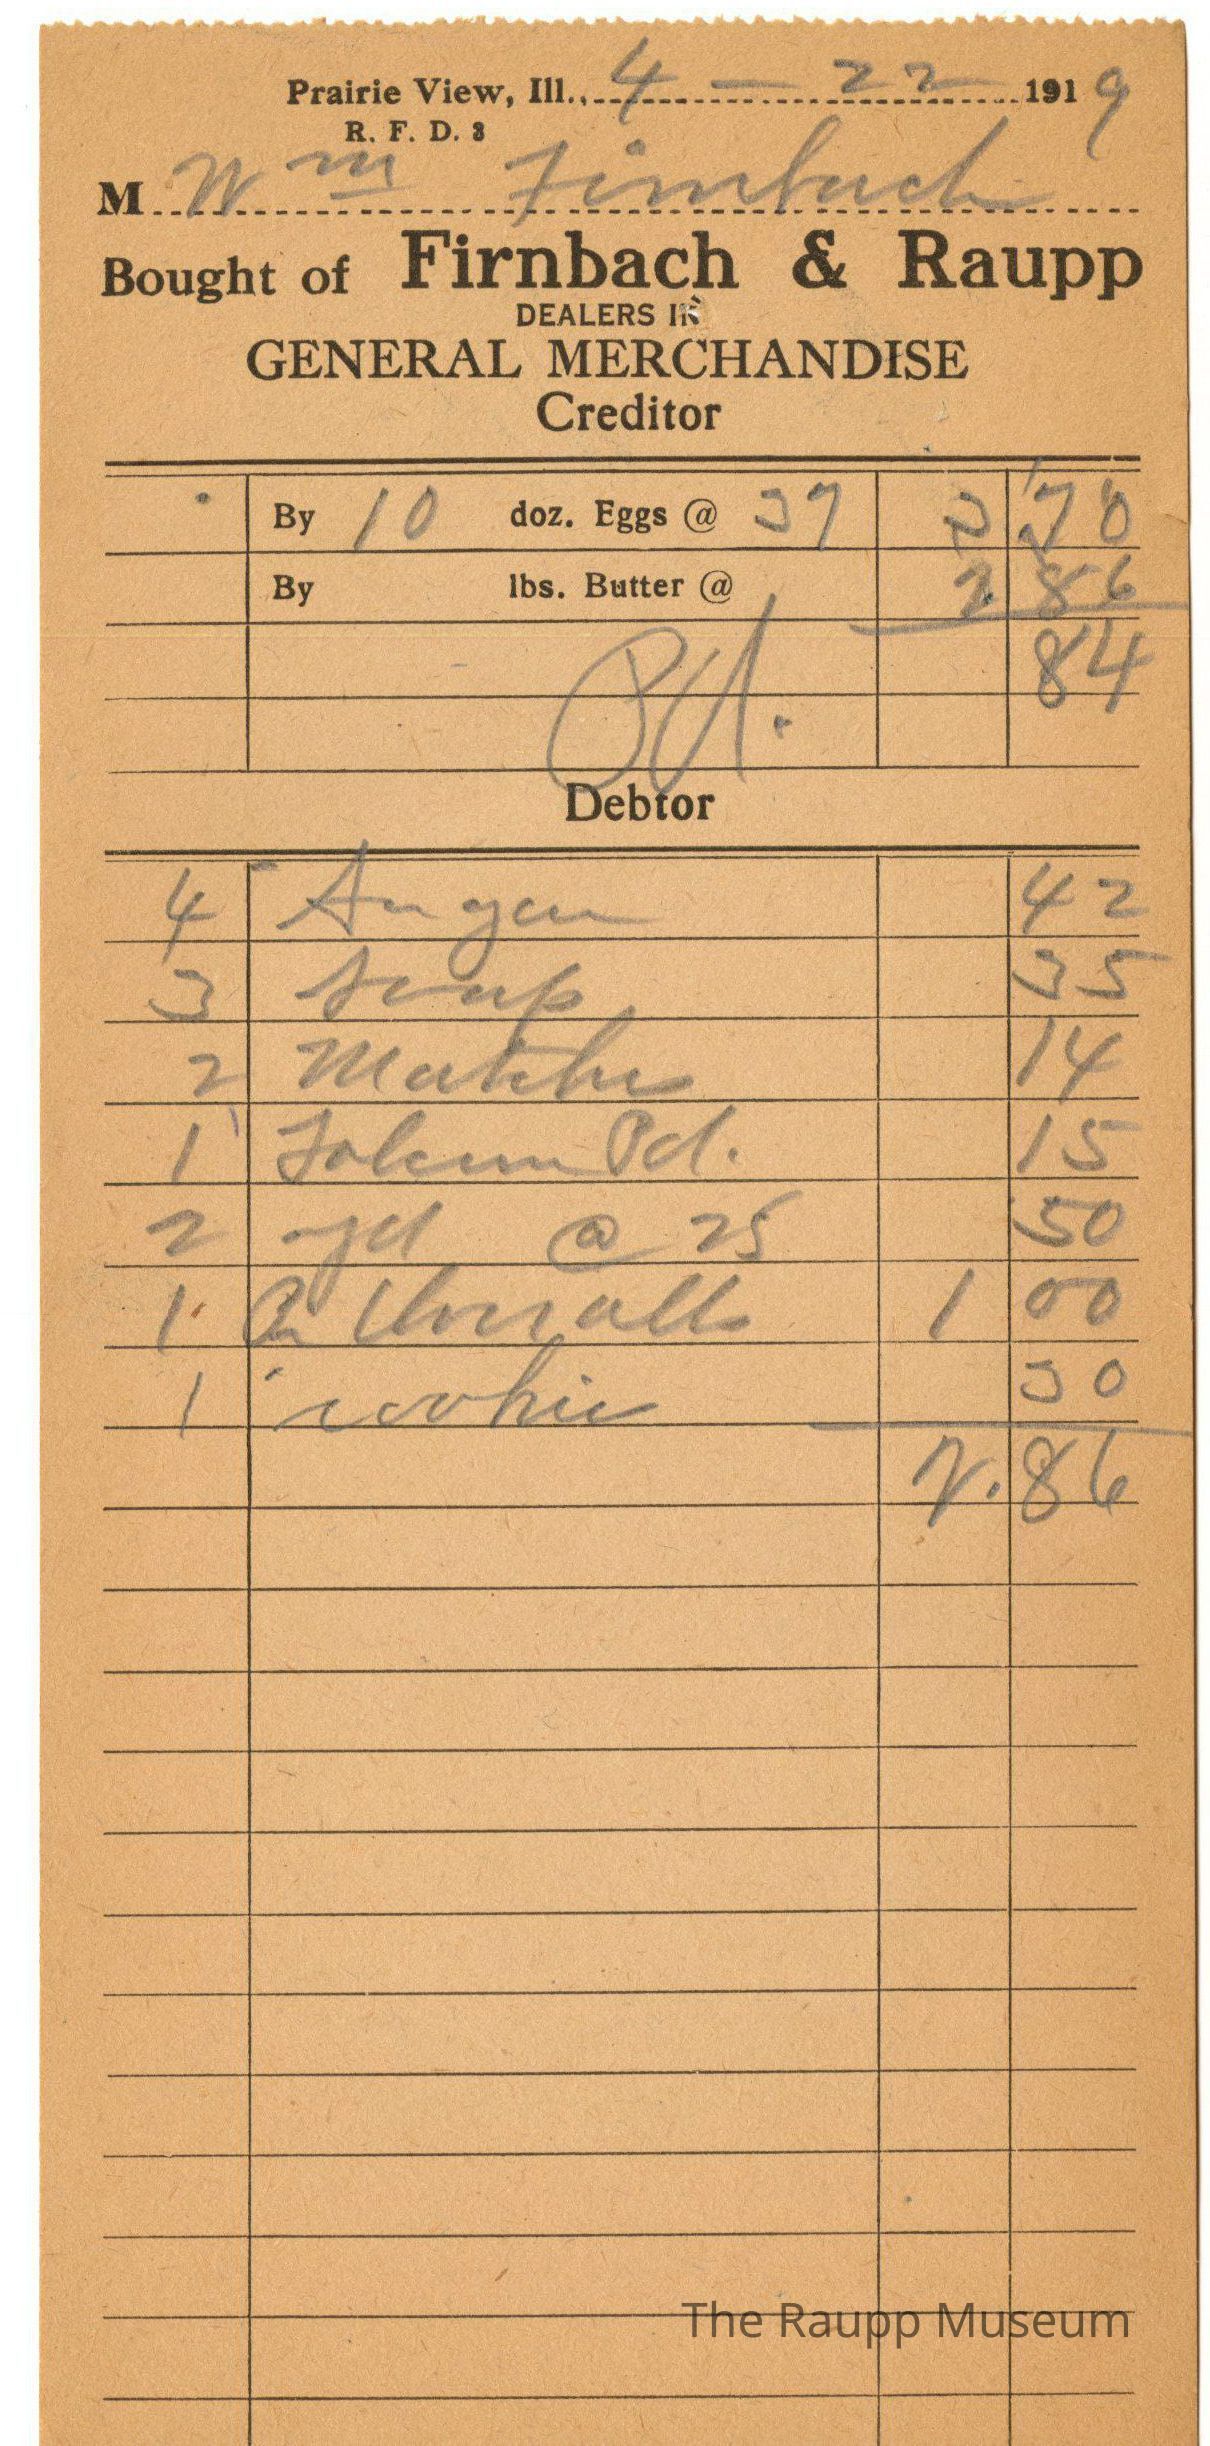 Prairie View, Ill., 4 - 22 1919
R. F. D. 3
M Wm Firnbach
Bought of Firnbach & Raupp
DEALERS IN
GENERAL MERCHANDISE
Creditor
By 10 doz. Eggs @ 37 3 70
By lbs. Butter @ 2 86
84
Pd.
Debtor
4 Sugar 42
3 Soap 35
2 Matches 14
1 Pd. 15
2 yd @ 25 50
1 Pr Overalls 1 00
1 cookies 30
2.86
The Raupp Museum